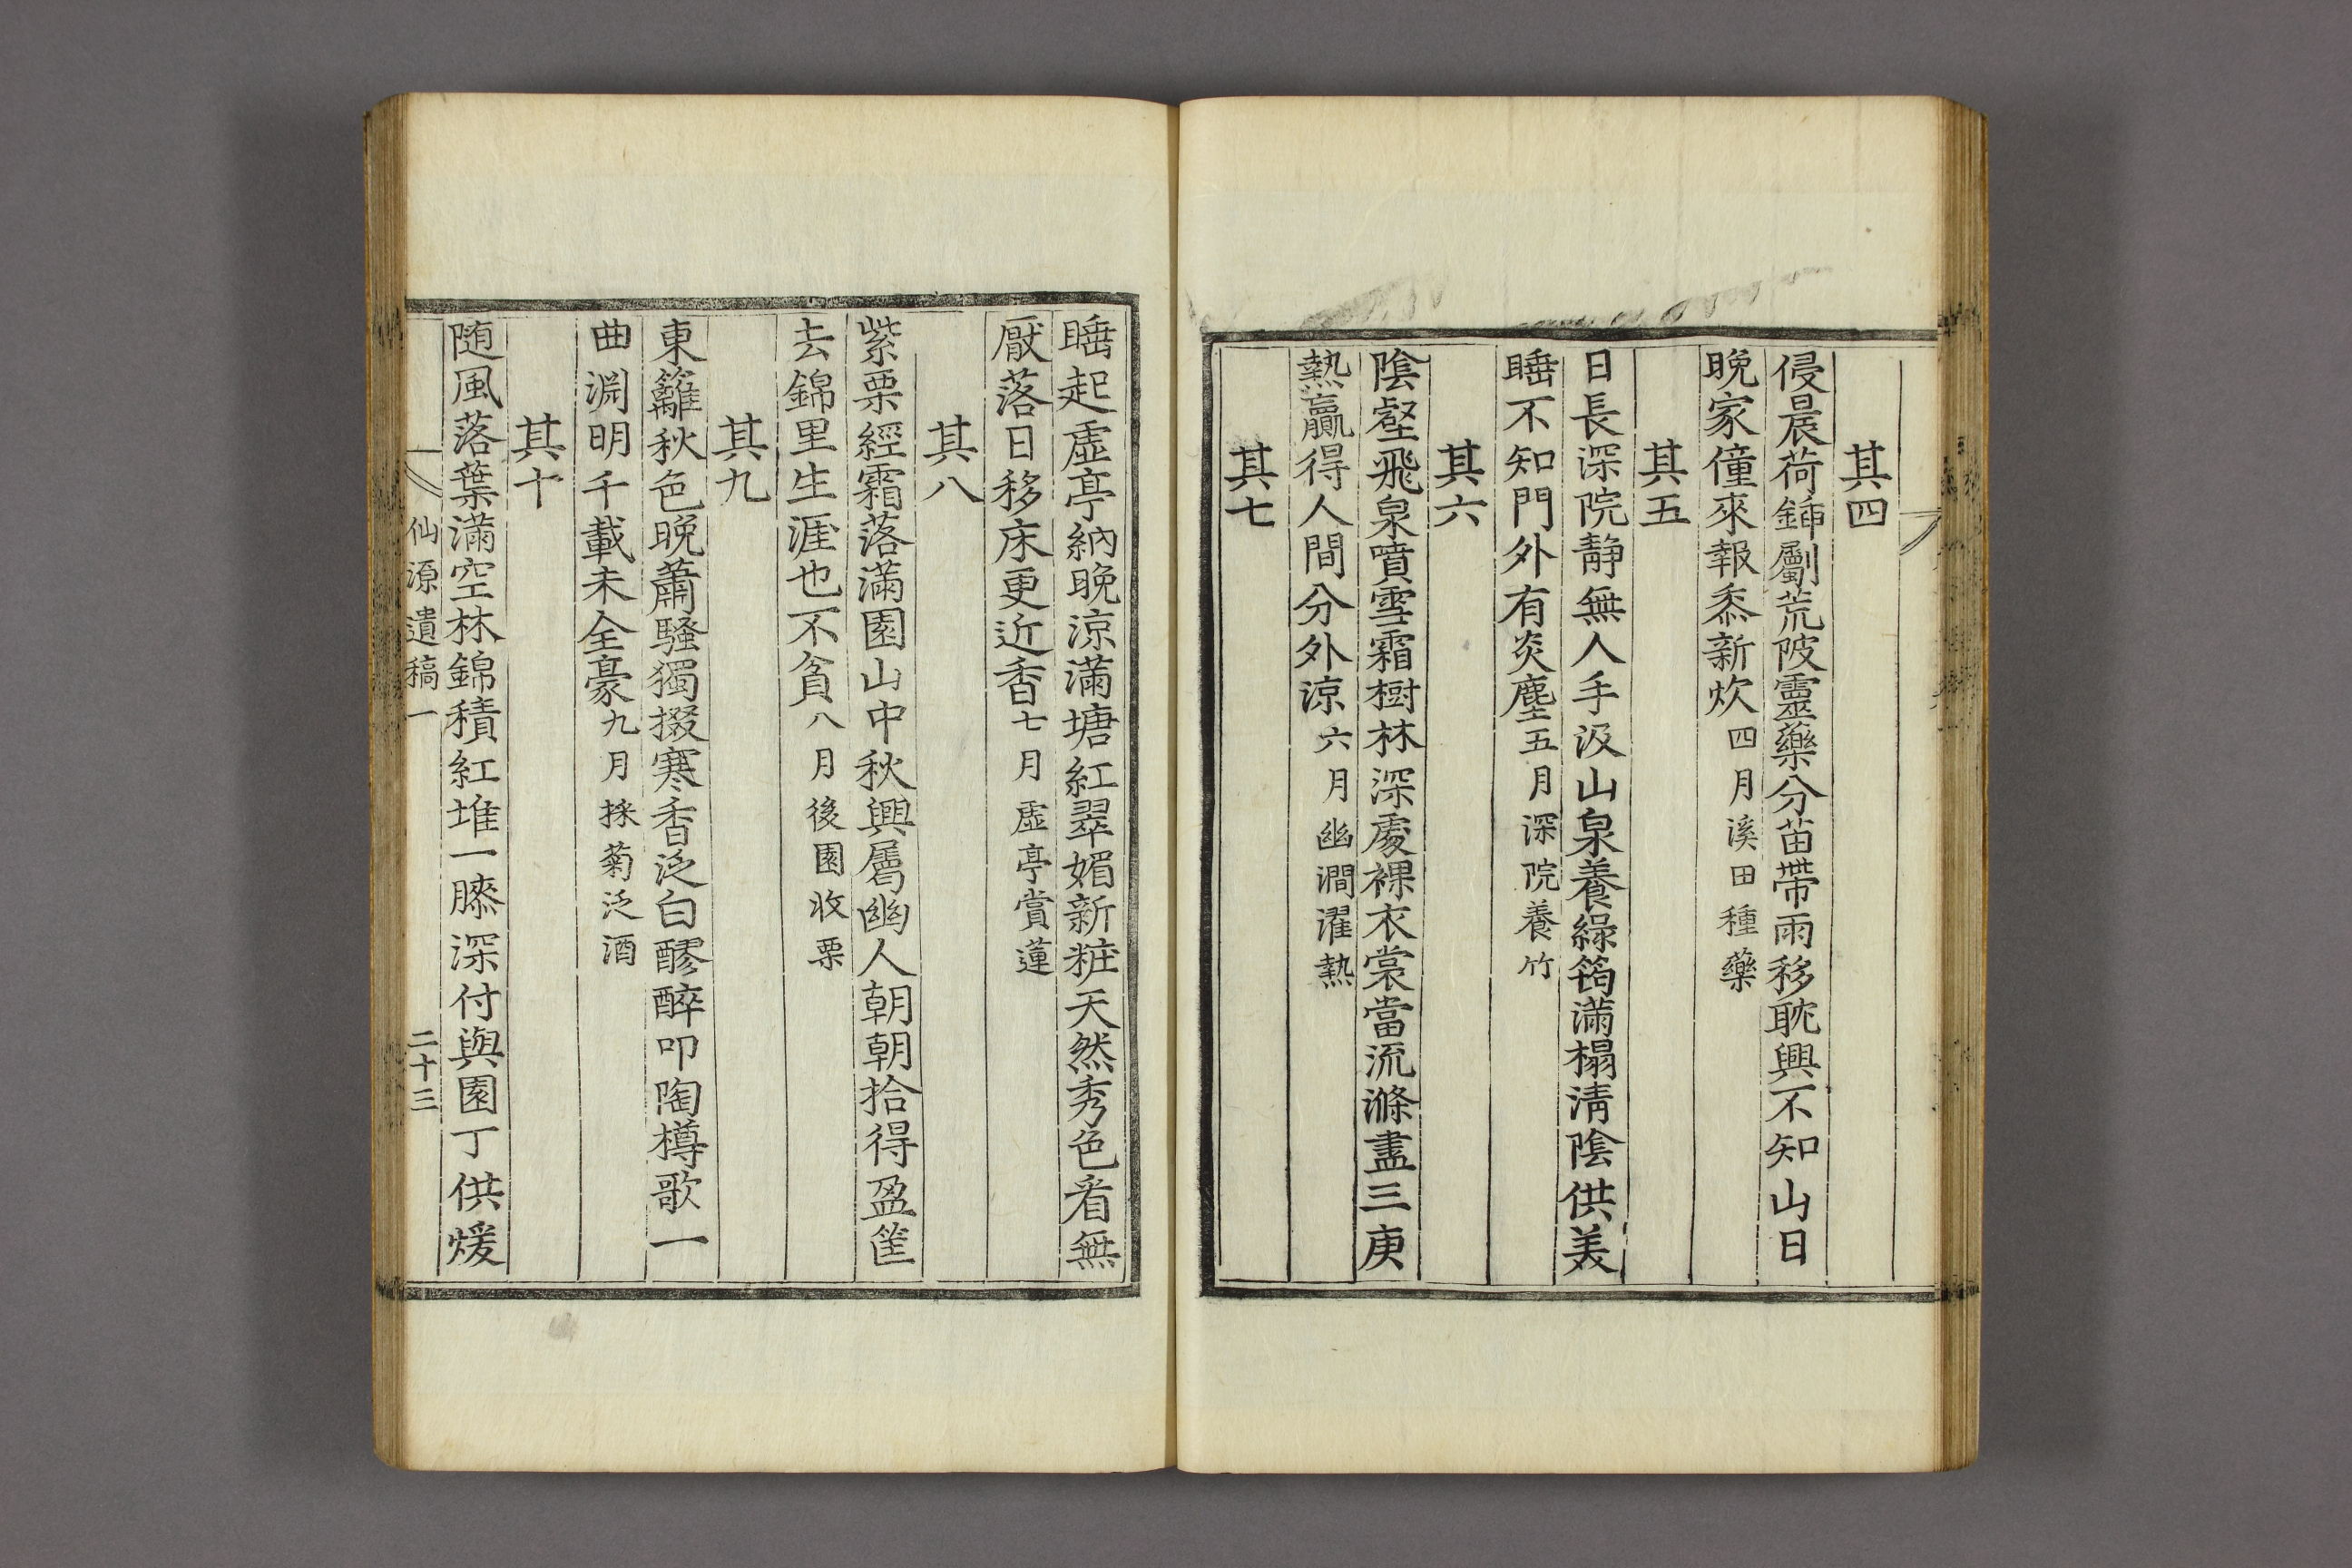 其四
侵晨荷鍤劚荒陂靈藥分苗帶雨移耽興不知山日
晚家僮來報黍新炊四月溪田種藥
其五
日長深院静無人手汲山泉養綠筠滿榻淸陰供美
睡不知門外有炎塵五月深院養竹
其六
陰壑飛泉噴雪霜樹林深處裸衣裳當流滌盡三庚
熱贏得人間分外凉六月幽澗濯熱
其七
睡起虛亭納晚凉滿塘紅翠媚新粧天然秀色看無
厭落日移床更近香七月虛亭賞蓮
其八
紫栗經霜落滿園山中秋興屬幽人朝朝拾得盈筐
去錦里生涯也不貧八月後園收栗
其九
東籬秋色晚蕭騷獨掇寒香泛白醪醉叩陶樽歌一
曲淵明千載未全豪九月採菊泛酒
其十
随風落葉滿空林錦積紅堆一膝深付與園丁供煖
仙源遺稿一
二十三